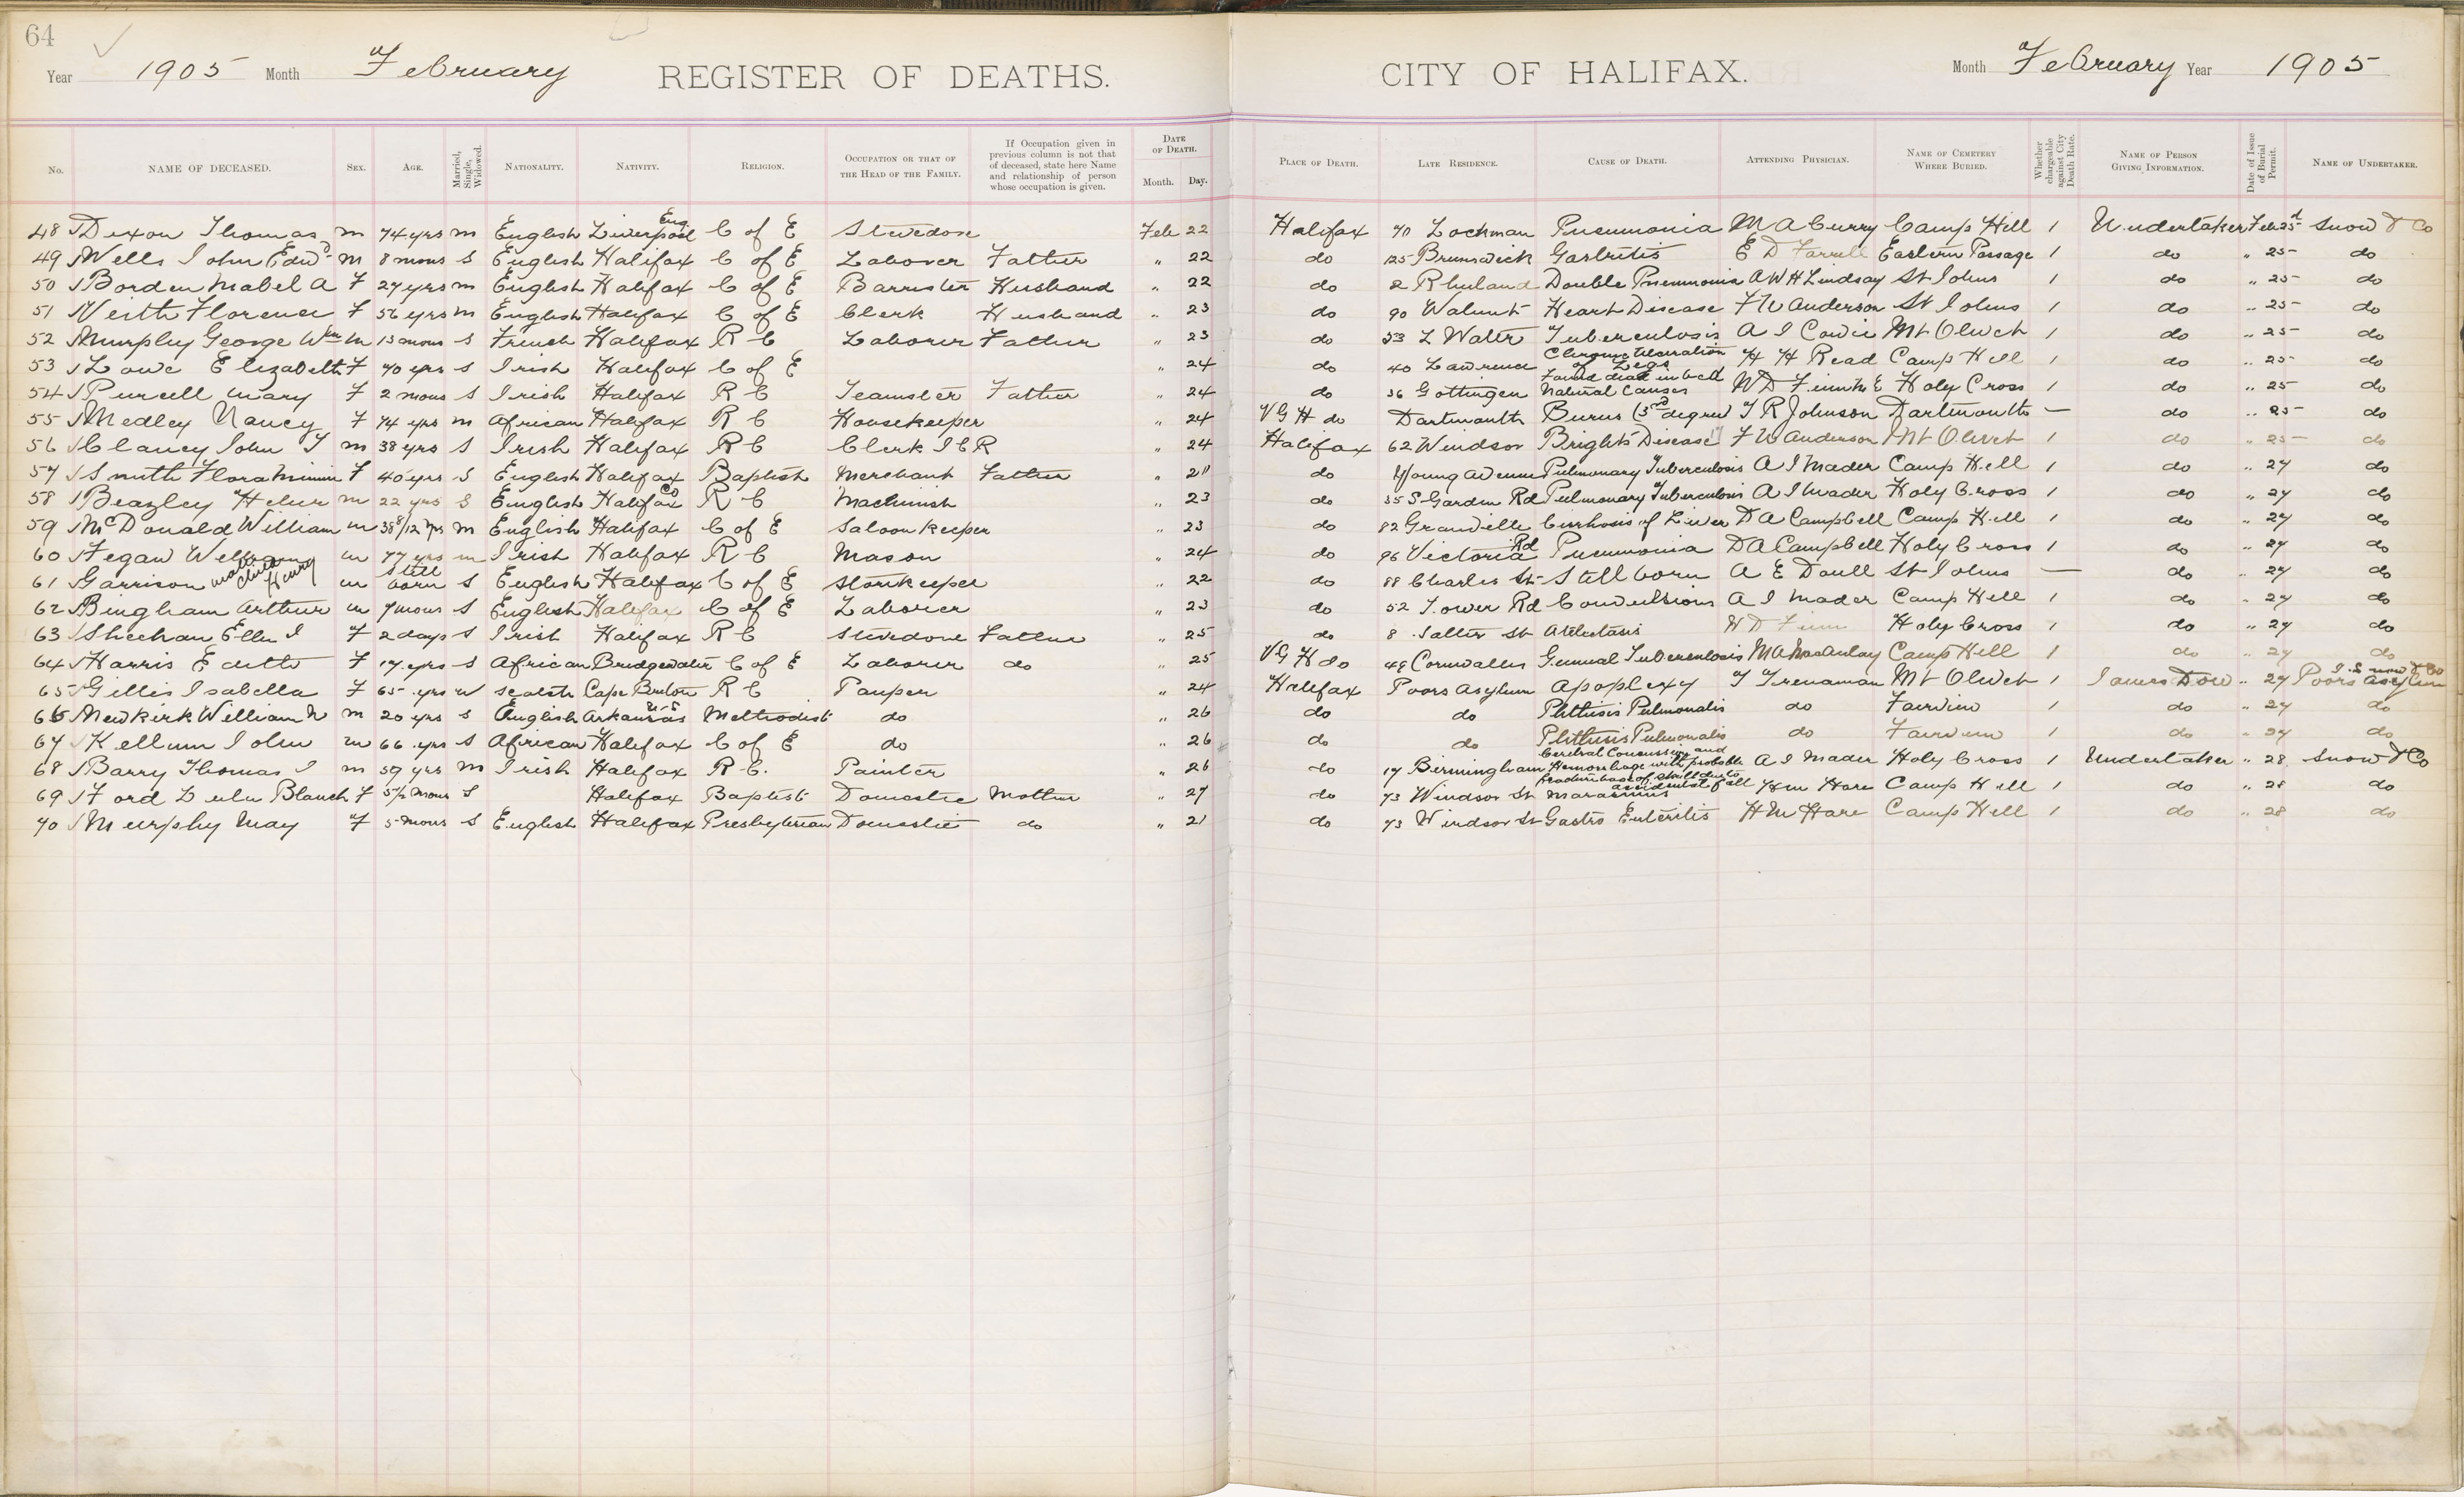 64
Year 1905 Month February REGISTER OF DEATHS. CITY OF HALIFAX. Month February Year 1905
No. NAME OF DECEASED. SEX. AGE. Married, Single, Widowed. NATIONALITY. NATIVITY. RELIGION. OCCUPATION OR THAT OF THE HEAD OF THE FAMILY. If Occupation given in previous column is not that of deceased, state here Name and relationship of person whose occupation is given. DATE OF DEATH. Month. Day. PLACE OF DEATH. LATE RESIDENCE. CAUSE OF DEATH. ATTENDING PHYSICIAN. NAME OF CEMETERY WHERE BURIED. Whether chargeable against City Death Rate. NAME OF PERSON GIVING INFORMATION. Date of Issue of Burial Permit. NAME OF UNDERTAKER.
48 Dixon Thomas m 74 yrs m English Liverpool Eng C of E Stevedore Feb 22 Halifax 70 Lockman Pneumonia M A Curry Camp Hill 1 Undertaker Feb 25 Snow & Co
49 Wells John Edwd m 8 mons S English Halifax C of E Laborer Father " 22 do 125 Brunswick Gastritis E D Farrell Eastern Passage 1 do " 25 do
50 Borden Mabel A F 27 yrs m English Halifax C of E Barrister Husband " 22 do 2 Rhuland Double Pneumonia A W H Lindsay St Johns 1 do " 25 do
51 Neith Florence F 56 yrs m English Halifax C of E Clerk Husband " 23 do 90 Walnut Heart Disease F W Anderson St Johns 1 do " 25 do
52 Murphy George Wm m 13 mons S French Halifax R C Laborer Father " 23 do 53 L Water Tuberculosis A I Cowie Mt Olivet 1 do " 25 do
53 Lowe Elizabeth F 70 yrs S Irish Halifax C of E " 24 do 40 Lawrence Chronic Ulceration of Legs H H Read Camp Hill 1 do " 25 do
54 Purcell Mary F 2 mons S Irish Halifax R C Teamster Father " 24 do 36 Gottingen Found dead in bed Natural Causes W D Finn M E Holy Cross 1 do " 25 do
55 Medley Nancy F 74 yrs m African Halifax R C Housekeeper " 24 V G H do Dartmouth Burns (3rd degree) T R Johnson Dartmouth — do " 25 do
56 Clancy John T m 38 yrs S Irish Halifax R C Clerk I C R " 24 Halifax 62 Windsor Brights Disease F W Anderson Mt Olivet 1 do " 25 do
57 Smith Flora Minnie F 40 yrs S English Halifax Baptist Merchant Father " 21 do Young Avenue Pulmonary Tuberculosis A I Mader Camp Hill 1 do " 27 do
58 Beazley m 22 yrs S English Halifax Co R C Machinist " 23 do 35 S Garden Rd Pulmonary Tuberculosis A I Mader Holy Cross 1 do " 27 do
59 McDonald William m 38 8/12 yrs m English Halifax C of E Saloon Keeper " 23 do 82 Granville Cirrhosis of Liver D A Campbell Camp Hill 1 do " 27 do
60 Fegan William m 77 yrs m Irish Halifax R C Mason " 24 do 96 Victoria Rd Pneumonia D A Campbell Holy Cross 1 do " 27 do
61 Garrison male child Henry m Still born S English Halifax C of E Storekeeper " 22 do 88 Charles St Stillborn A E Doull St Johns — do " 27 do
62 Bingham Arthur m 7 mons S English Halifax C of E Laborer " 23 do 52 Tower Rd Convulsions A I Mader Camp Hill 1 do " 27 do
63 Sheehan Ellen J F 2 days S Irish Halifax R C Stevedore Father " 25 do 8 Salter St Atelectasis W D Finn Holy Cross 1 do " 27 do
64 Harris Edith F 17 yrs S African Bridgewater C of E Laborer do " 25 V G H do 48 Cornwallis General Tuberculosis M A MacAulay Camp Hill 1 do " 27 do
65 Gillis Isabella F 65 yrs W Scotch Cape Breton R C Pauper " 24 Halifax Poors Asylum Apoplexy T Trenaman Mt Olivet 1 James Dow " 27 J. Snow & Co Poors Asylum
66 Newkirk William N m 20 yrs S English Arkansas U S Methodist do " 26 do do Phthisis Pulmonalis do Fairview 1 do " 27 do
67 Kellum John m 66 yrs S African Halifax C of E do " 26 do do Phthisis Pulmonalis do Fairview 1 do " 27 do
68 Barry Thomas J m 59 yrs m Irish Halifax R C. Painter " 26 do 17 Birmingham Cerebral Concussion and Hemorrhage with probable fracture base of skull due to accidental fall A I Mader Holy Cross 1 Undertaker " 28 Snow & Co
69 Ford Lulu Blanch F 5½ mons S Halifax Baptist Domestic Mother " 27 do 73 Windsor St Marasmus H M Hare Camp Hill 1 do " 28 do
70 Murphy May F 5 mons S English Halifax Presbyterian Domestic do " 21 do 73 Windsor St Gastro Enteritis H M Hare Camp Hill 1 do " 28 do